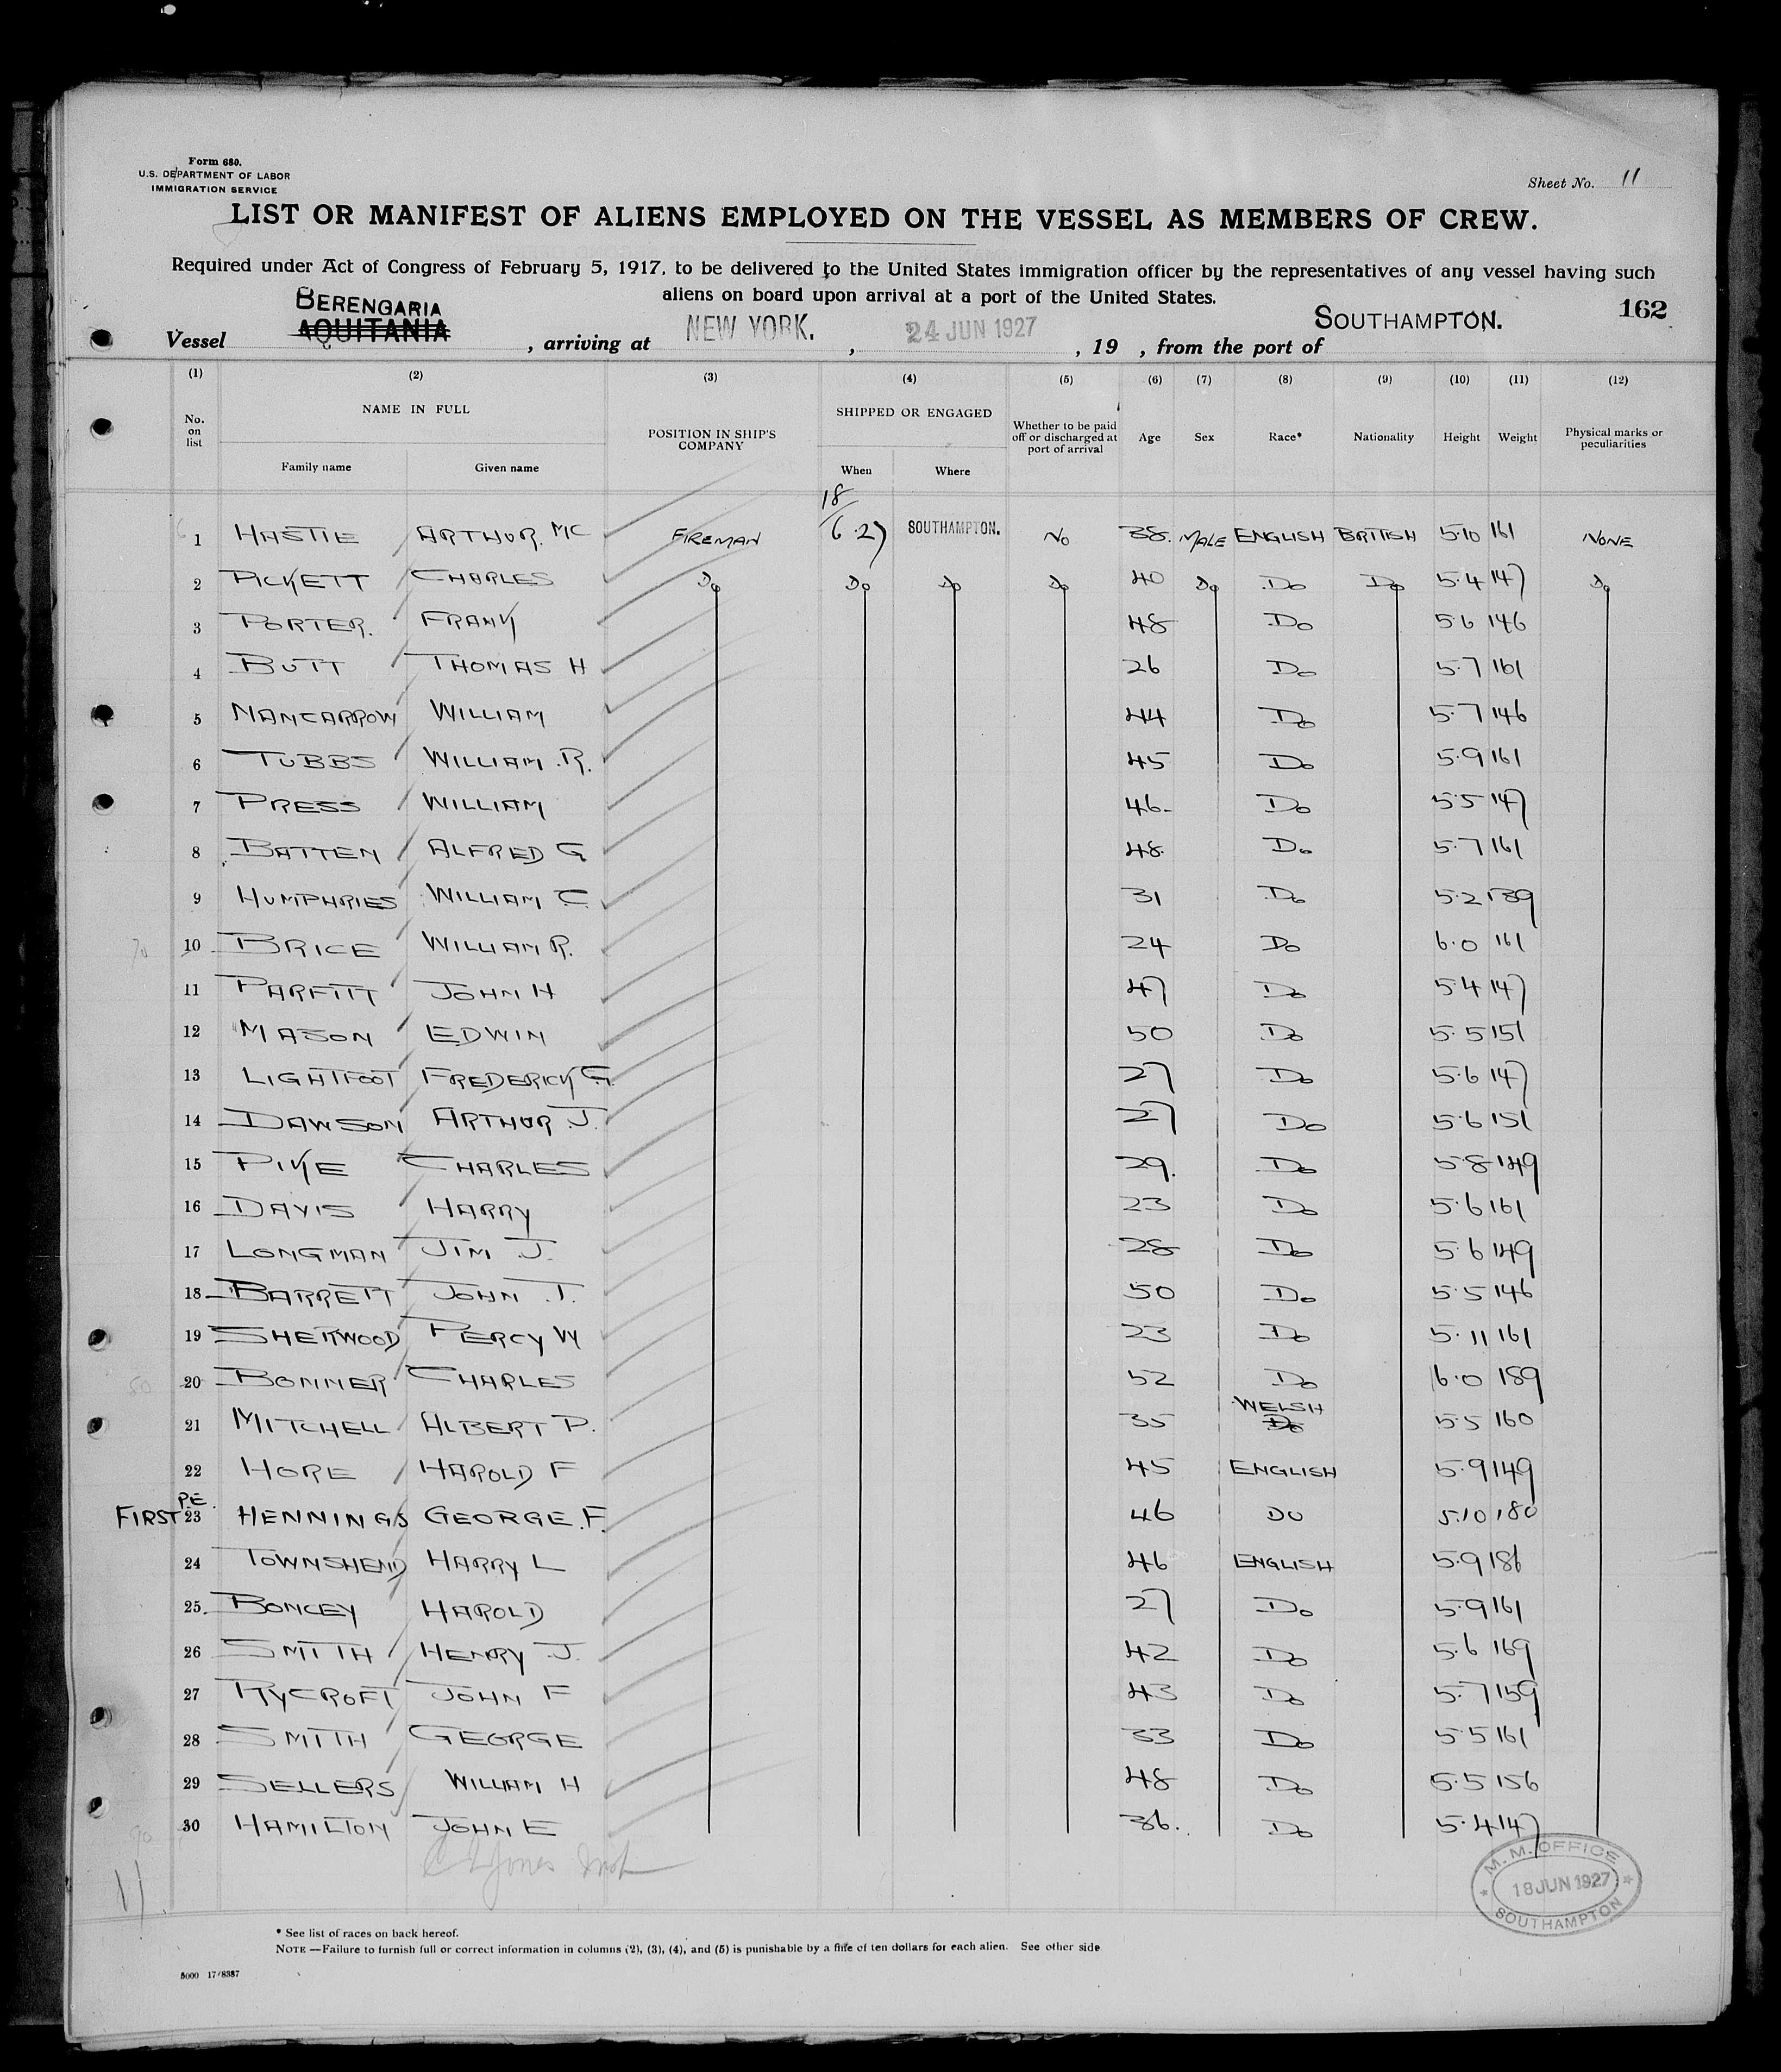 Form 680.
U.S. DEPARTMENT OF LABOR
IMMIGRATION SERVICE
Sheet No. 11
LIST OR MANIFEST OF ALIENS EMPLOYED ON THE VESSEL AS MEMBERS OF CREW.
Required under Act of Congress of February 5, 1917, to be delivered to the United States immigration officer by the representatives of any vessel having such
aliens on board upon arrival at a port of the United States.
162
BERENGARIA
Vessel AQUITANIA, arriving at NEW YORK., 24 JUN 1927, 19 , from the port of SOUTHAMPTON.
(1) (2) (3) (4) (5) (6) (7) (8) (9) (10) (11) (12)
No. on list NAME IN FULL Family name Given name POSITION IN SHIP'S COMPANY SHIPPED OR ENGAGED When Where Whether to be paid off or discharged at port of arrival Age Sex Race* Nationality Height Weight Physical marks or peculiarities
1 HASTIE ARTHUR. MC FIREMAN 18/6.27 SOUTHAMPTON. NO 38. MALE ENGLISH BRITISH 5.10 161 NONE
2 PICKETT CHARLES Do Do Do Do 40 Do Do Do 5.4 147 Do
3 PORTER. FRANK 48 Do 5.6 146
4 BUTT THOMAS H 26 Do 5.7 161
5 NANCARROW WILLIAM 44 Do 5.7 146
6 TUBBS WILLIAM .R. 45 Do 5.9 161
7 PRESS WILLIAM 46- Do 5.5 147
8 BATTEN ALFRED G 48. Do 5.7 161
9 HUMPHRIES WILLIAM C. 31 Do 5.2 139
10 BRICE WILLIAM R. 24 Do 6.0 161
11 PARFITT JOHN H 47 Do 5.4 147
12 MASON EDWIN 50 Do 5.5 151
13 LIGHTFOOT FREDERICK G. 27 Do 5.6 147
14 DAWSON ARTHUR J. 27 Do 5.6 151
15 PIKE CHARLES 29. Do 5.8 149
16 DAVIS HARRY 23 Do 5.6 161
17 LONGMAN JIM J. 28 Do 5.6 149
18 BARRETT JOHN T. 50 Do 5.5 146
19 SHERWOOD PERCY W 23 Do 5.11 161
20 BONNER CHARLES 52 Do 6.0 189
21 MITCHELL ALBERT P. 35 WELSH Do 5.5 160
22 HORE HAROLD F 45 ENGLISH 5.9 149
FIRST P.E. 23 HENNINGS GEORGE.F. 46 DO 5.10 180
24 TOWNSHEND HARRY L 46 ENGLISH 5.9 186
25. BONCEY HAROLD 27 Do 5.9 161
26 SMITH HENRY J. 42 Do 5.6 169
27 RYCROFT JOHN F 43 Do 5.7 159
28 SMITH GEORGE 33 Do 5.5 161
29 SELLERS WILLIAM H 48 Do 5.5 156
30 HAMILTON JOHN E 36. Do 5.4 147
11
M.M. OFFICE
18 JUN 1927
SOUTHAMPTON
* See list of races on back hereof.
NOTE —Failure to furnish full or correct information in columns (2), (3), (4), and (5) is punishable by a fine of ten dollars for each alien. See other side
5000 17/8387